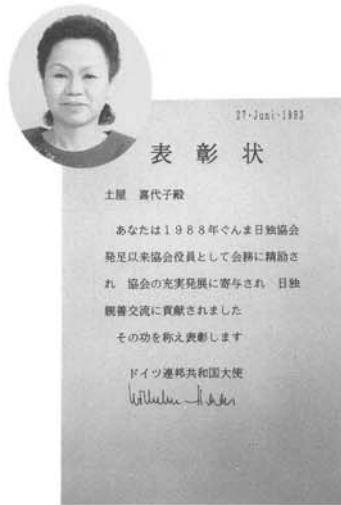 27-Juni-1993
表彰状
土屋 喜代子殿
あなたは1988年ぐんま日独協会
発足以来協会役員として会務に精励さ
れ 協会の充実発展に寄与され 日独
親善交流に貢献されました
その功を称え表彰します
ドイツ連邦共和国大使